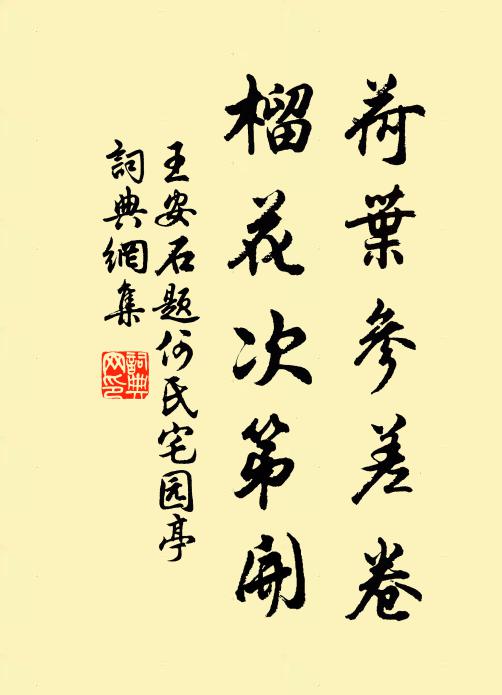 荷葉參差卷
榴花次第開
王安石題何氏宅园亭
詞典網集
詞典网印